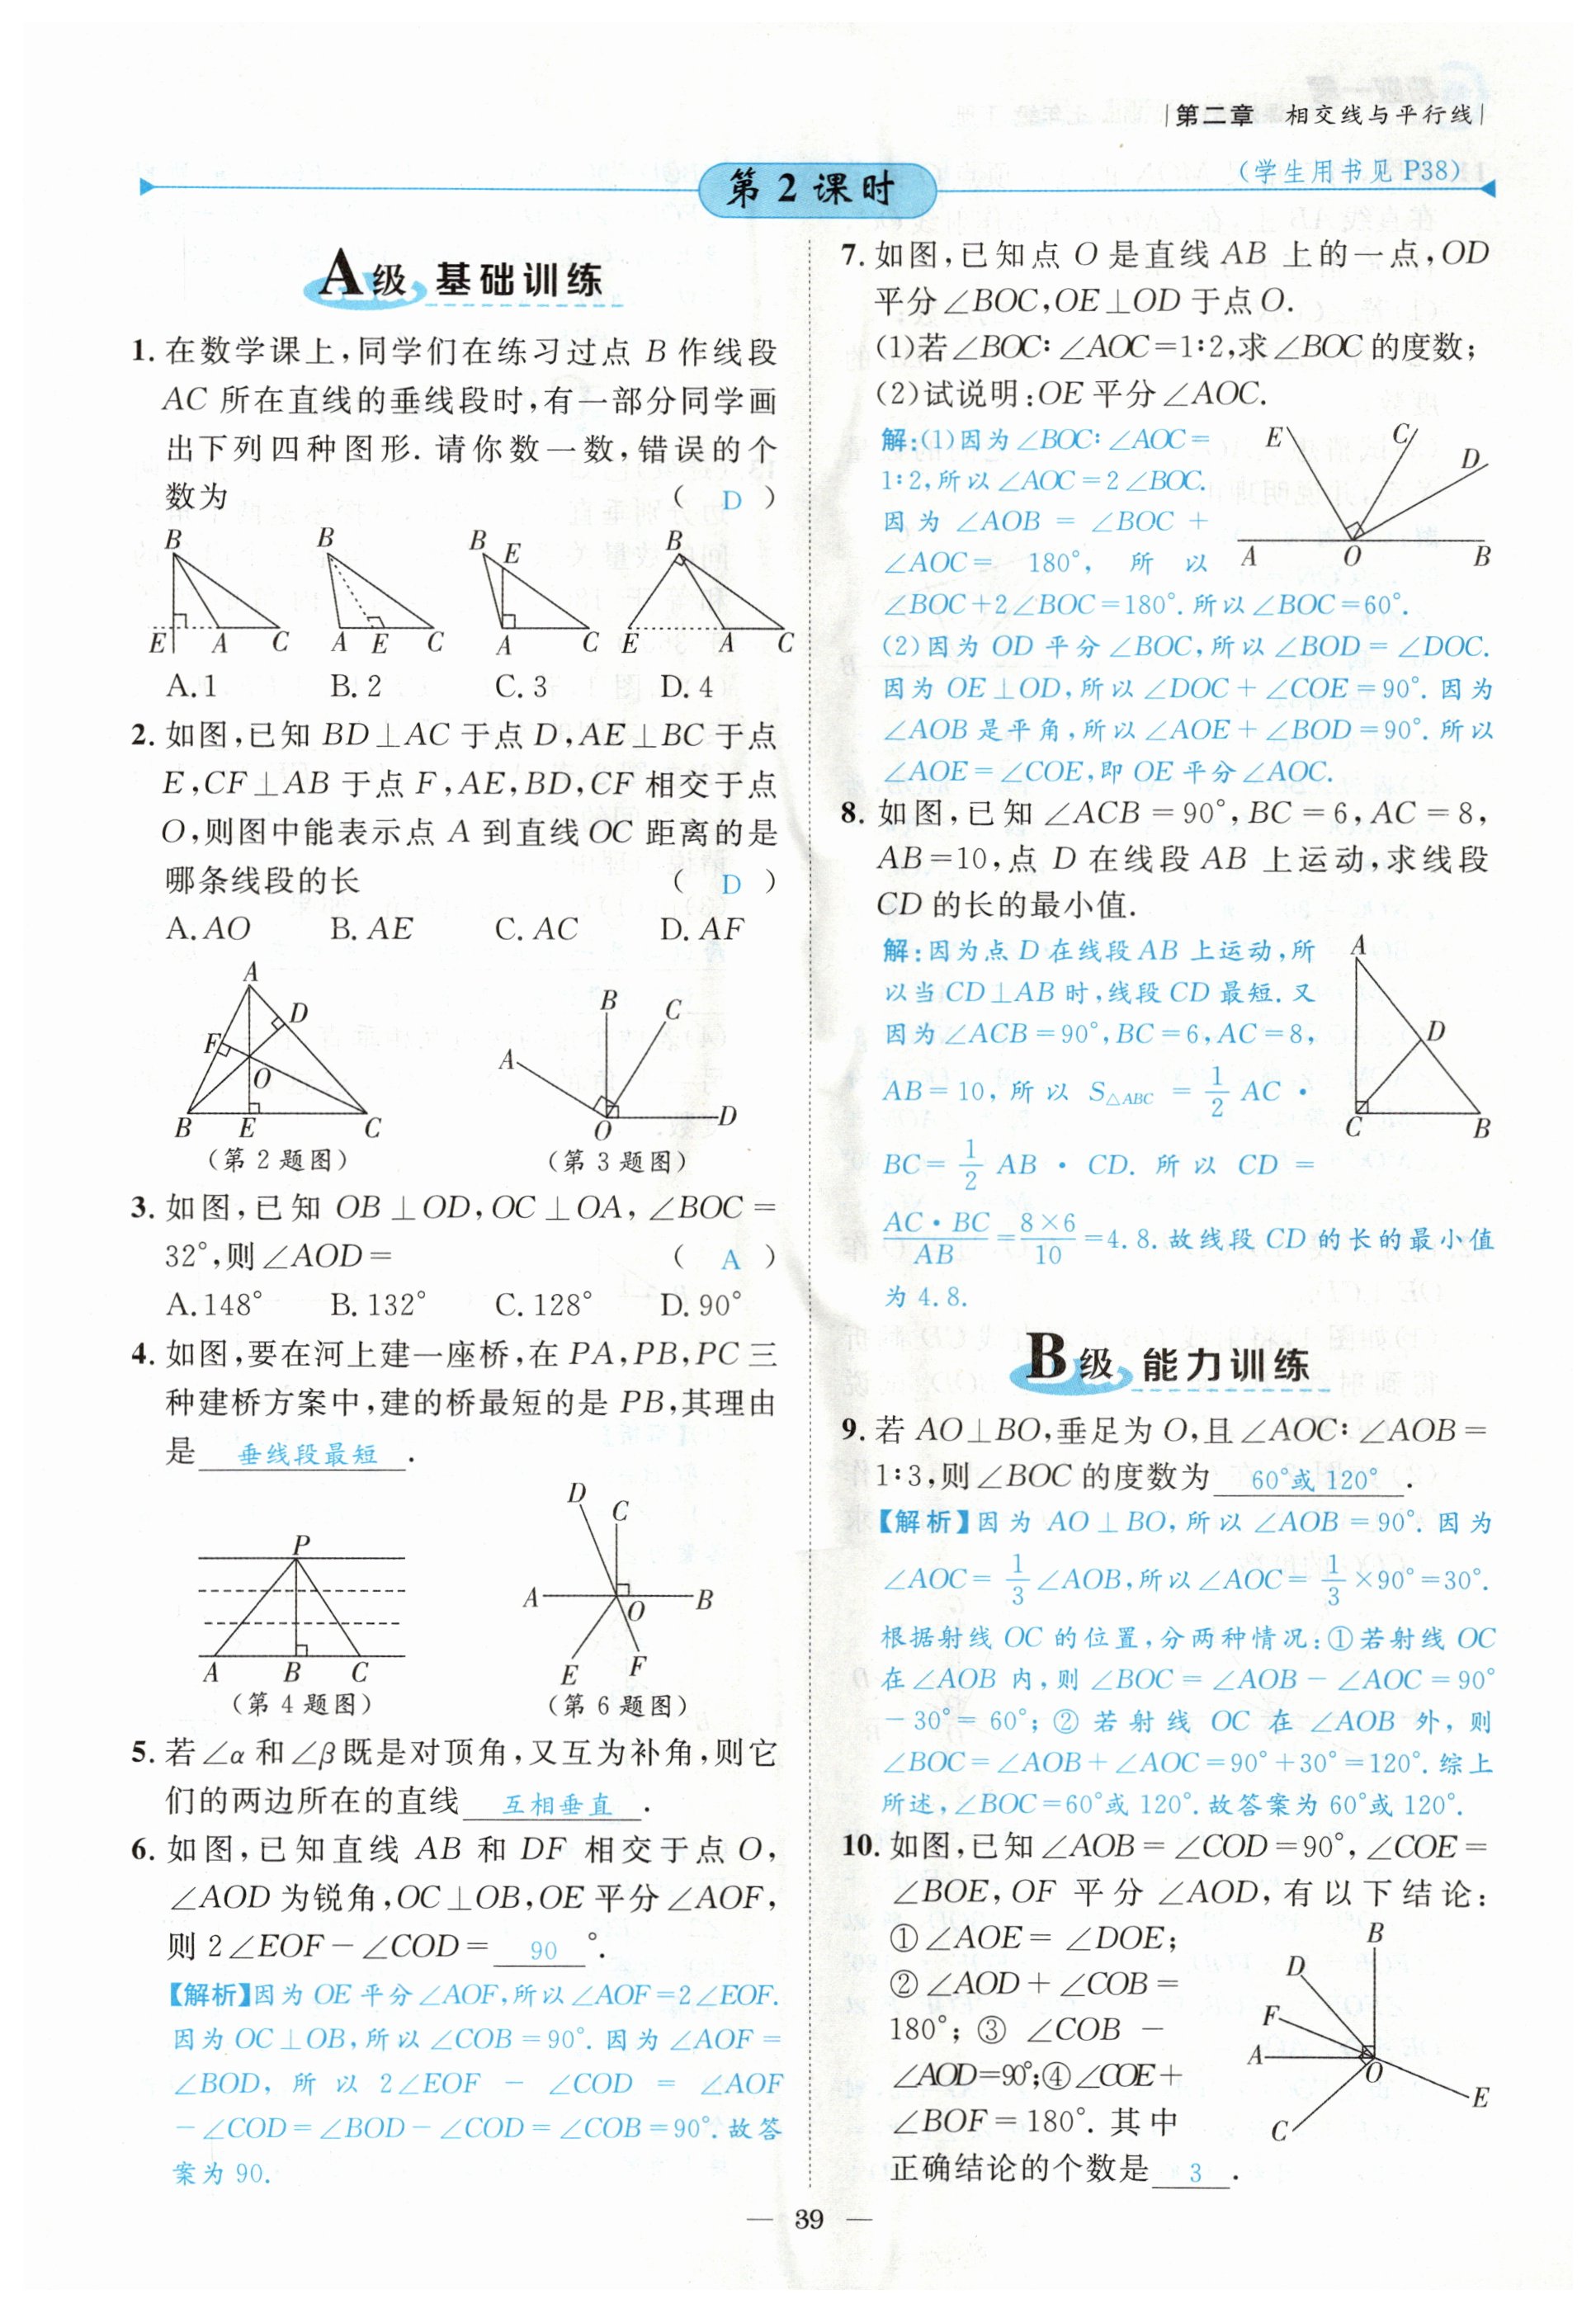 |第二章 相交线与平行线|
(学生用书见 P38)
第 2 课时
A级 基础训练
1. 在数学课上,同学们在练习过点 B 作线段
AC 所在直线的垂线段时,有一部分同学画
出下列四种图形. 请你数一数,错误的个
数为 ( D )
B
E A C
B
A E C
B E
A C
B
E A C
A. 1 B. 2 C. 3 D. 4
2. 如图,已知 BD⊥AC 于点 D,AE⊥BC 于点
E,CF⊥AB 于点 F,AE,BD,CF 相交于点
O,则图中能表示点 A 到直线 OC 距离的是
哪条线段的长 ( D )
A. AO B. AE C. AC D. AF
A
D
F
O
B E C
(第 2 题图)
B C
A
O D
(第 3 题图)
3. 如图,已知 OB⊥OD,OC⊥OA,∠BOC=
32°,则∠AOD= ( A )
A. 148° B. 132° C. 128° D. 90°
4. 如图,要在河上建一座桥,在 PA,PB,PC 三
种建桥方案中,建的桥最短的是 PB,其理由
是 垂线段最短 .
P
A B C
(第 4 题图)
D C
A O B
E F
(第 6 题图)
5. 若∠α 和∠β 既是对顶角,又互为补角,则它
们的两边所在的直线 互相垂直 .
6. 如图,已知直线 AB 和 DF 相交于点 O,
∠AOD 为锐角,OC⊥OB,OE 平分∠AOF,
则 2∠EOF-∠COD= 90 °.
【解析】因为 OE 平分∠AOF,所以∠AOF=2∠EOF.
因为 OC⊥OB,所以∠COB=90°. 因为∠AOF=
∠BOD, 所以 2∠EOF - ∠COD = ∠AOF
-∠COD=∠BOD-∠COD=∠COB=90°. 故答
案为 90.
7. 如图,已知点 O 是直线 AB 上的一点,OD
平分∠BOC,OE⊥OD 于点 O.
(1)若∠BOC∶∠AOC=1∶2,求∠BOC 的度数;
(2)试说明:OE 平分∠AOC.
解:(1)因为∠BOC∶∠AOC=
1∶2,所以∠AOC=2∠BOC.
因为 ∠AOB = ∠BOC +
∠AOC= 180°, 所以
∠BOC+2∠BOC=180°. 所以∠BOC=60°.
E C D
A O B
(2)因为 OD 平分∠BOC,所以∠BOD=∠DOC.
因为 OE⊥OD,所以∠DOC+∠COE=90°. 因为
∠AOB 是平角,所以∠AOE+∠BOD=90°. 所以
∠AOE=∠COE,即 OE 平分∠AOC.
8. 如图,已知∠ACB=90°,BC=6,AC=8,
AB=10,点 D 在线段 AB 上运动,求线段
CD 的长的最小值.
解:因为点 D 在线段 AB 上运动,所
以当 CD⊥AB 时,线段 CD 最短. 又
因为∠ACB=90°,BC=6,AC=8,
AB=10,所以 S△ABC = 1/2 AC ·
BC= 1/2 AB · CD. 所以 CD =
AC·BC/AB=8×6/10=4.8. 故线段 CD 的长的最小值
为 4.8.
A
D
C B
B级 能力训练
9. 若 AO⊥BO,垂足为 O,且∠AOC∶∠AOB=
1∶3,则∠BOC 的度数为 60°或 120° .
【解析】因为 AO⊥BO,所以∠AOB=90°. 因为
∠AOC= 1/3∠AOB,所以∠AOC= 1/3×90°=30°.
根据射线 OC 的位置,分两种情况:①若射线 OC
在∠AOB 内,则∠BOC=∠AOB-∠AOC=90°
-30°=60°;②若射线 OC 在∠AOB 外,则
∠BOC=∠AOB+∠AOC=90°+30°=120°. 综上
所述,∠BOC=60°或 120°. 故答案为 60°或 120°.
10. 如图,已知∠AOB=∠COD=90°,∠COE=
∠BOE,OF 平分∠AOD,有以下结论:
①∠AOE=∠DOE;
②∠AOD+∠COB=
180°;③ ∠COB -
∠AOD=90°;④∠COE+
∠BOF=180°. 其中
正确结论的个数是 3 .
B
D
F
A O
E
C
— 39 —